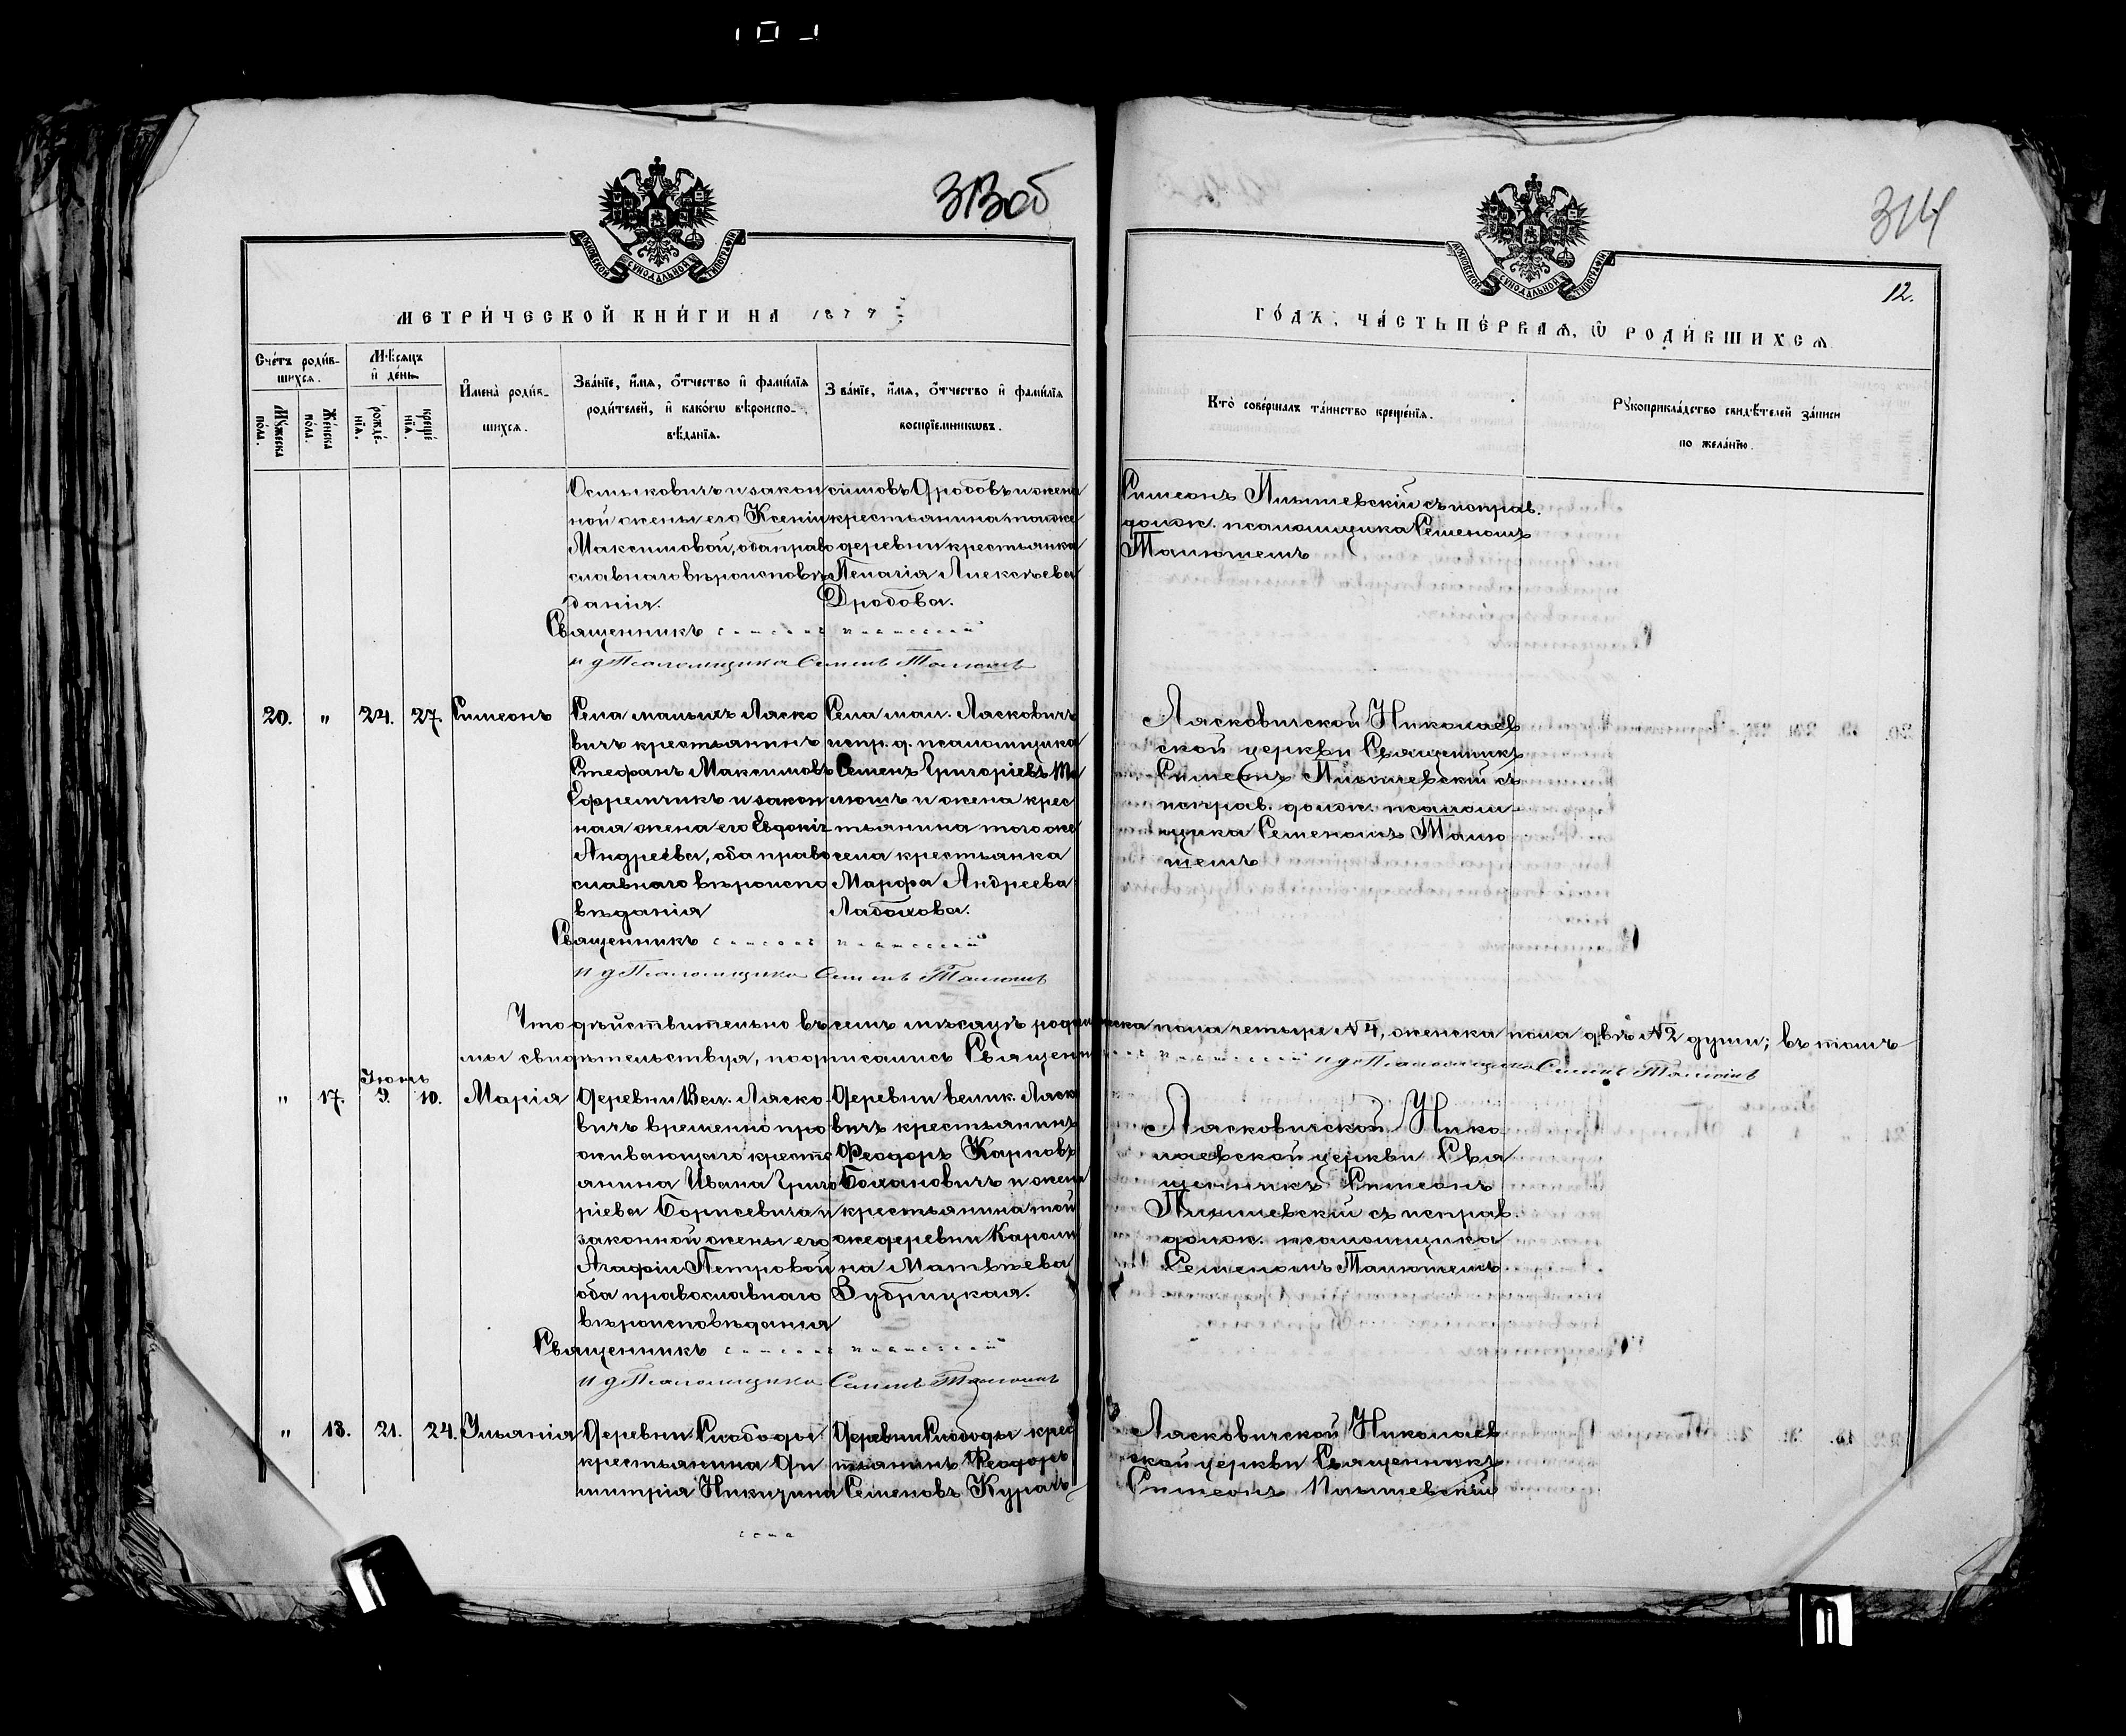 313 об
314
12.
МОСКОВСКОЙ СѴНОДАЛЬНОЙ ТИПОГРАФІИ
МОСКОВСКОЙ СѴНОДАЛЬНОЙ ТИПОГРАФІИ
МЕТРИ́ЧЕСКОЙ КНИ́ГИ НА 1877
ГО́ДЪ, ЧА́СТЬ ПЕ́РВАѦ, Ѿ РОДИ́ВШИХСѦ
Сче́тъ роди́в-
шихсѧ.
Мꙋ́жеска
по́ла.
Же́нска
по́ла.
Мѣ́сѧцъ
и҆ де́нь
рожде́-
нїѧ.
креще́
нїѧ.
И҆мена̀ роди́в-
шихсѧ.
Зва́нїе, и҆́мѧ, ѻ҆́тчество и҆ фами́лїѧ
роди́телей, и҆ како́гѡ вѣроиспо-
вѣ́данїѧ.
Зва́нїе, и҆́мѧ, ѻ҆́тчество и҆ фами́лїѧ
воспрїе́мникѡвъ.
Кто̀ соверша́лъ та́инство креще́нїѧ.
Рꙋкоприкла́дство свидѣ́телей за́писи
по жела́нїю.
Остьковичъ и закон
ной жены его Ксеніи
Максимовой, оба право
славнаго вѣроисповѣ
данія.
симовъ Дробовъ и жена
крестьянина тойже
деревни крестьянка
Пелагія Алексѣева
Дробова.
Симеонъ Пигулевскій съ исправ.
долж. псаломщика Семеномъ
Талюшемъ
Священникъ
и д Псаломщика Семенъ Талюшъ
20. " 24. 27. Симеонъ
Села малыхъ Ляско
вичъ крестьянинъ
Стефанъ Максимовъ
Ефремчикъ и закон
ная жена его Евдокія
Андреева, оба право
славнаго вѣроиспо
вѣданія
Села мал. Ласковичъ
испр. д. псаломщика
Семенъ Григоріевъ Та
люшъ и жена крес
тьянина тогоже
села крестьянка
Марфа Андреева
Лаболова.
Лясковичской Николаев
ской церкви Священникъ
Симеонъ Пигулевскій съ
исправ. долж. псалом
щика Семеномъ Талю
шемъ
Священникъ
и д Псаломщика Семенъ Талюшъ
Что дѣйствительно въ семъ мѣсяцѣ роди еска пола четыре №4, женска пола двѣ №2 души; въ томъ
мы свидѣтельствуя, подписались Священн и д Псаломщика Семенъ Талюшъ
Іюнь
" 17. 9. 10. Марія
Деревни Вел. Ляско
вичъ временно про
живающаго кресть
янина Ивана Григо
ріева Борисевича и
законной жены его
Агафіи Петровой
оба православнаго
вѣроисповѣданія
Деревни велик. Ляск
вичъ крестьянинъ
Феодоръ Карповъ
Болановичъ и жена
крестьянина той
жедеревни Кароли
на Матвѣева
Зубрицкая.
Лясковичской Нико
лаевской церкви Свя
щенникъ Симеонъ
Пигулевскій съ исправ.
долж. псаломщика
Семеномъ Талюшемъ
Священникъ
и д Псаломщика Семенъ Талюшъ
" 18. 21. 24. Ульянія
Деревни Слободы
крестьянина Ди
митрія Никитина
Деревни Слободы крес
тьянинъ Феодоръ
Семеновъ Курачъ
Лясковичской Николаев
ской церкви Священникъ
Симеонъ Пигулевскій